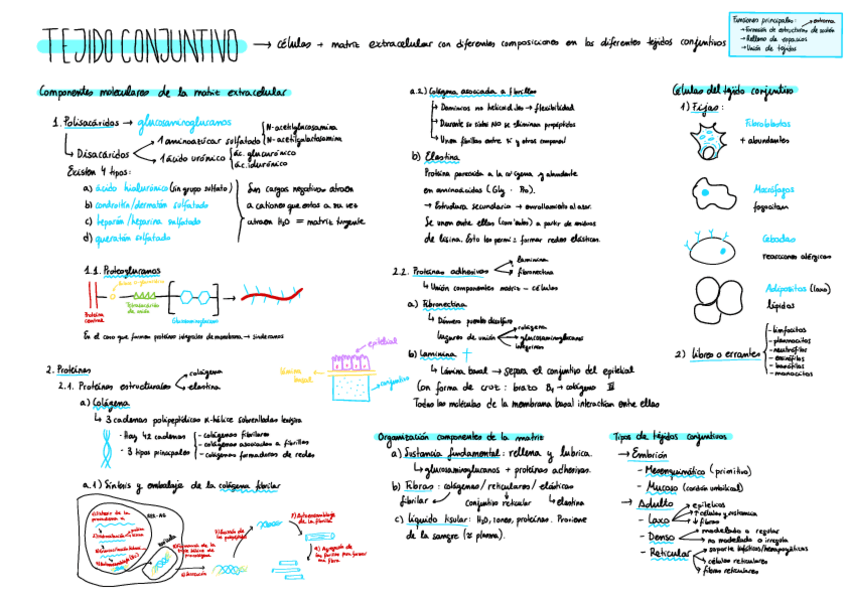 TEJIDO CONJUNTIVO → células + matriz extracelular con diferentes composiciones en los diferentes tejidos conjuntivos
Funciones principales:
→ Formación de estructuras de sostén
→ Relleno de espacios
→ Unión de tejidos
Componentes moleculares de la matriz extracelular
1. Polisacáridos → glucosaminoglucanos
Disacáridos
1 aminoazúcar sulfatado
N-acetilglucosamina
N-acetilgalactosamina
1 ácido urónico
ác. glucurónico
ác. idurónico
Existen 4 tipos:
a) ácido hialurónico (sin grupo sulfato)
b) condroitín/dermatán sulfatado
c) heparán/heparina sulfatado
d) queratán sulfatado
Sus cargas negativas atraen
a cationes que estos a su vez
atraen H₂O = matriz turgente
1.1. Proteoglucanos
Proteína central
Trisacárido de unión
Glucosaminoglucano
En el caso que formen proteínas integrales de membrana → sindecanos
2. Proteínas
2.1. Proteínas estructurales
colágena
elastina
a) Colágena
↳ 3 cadenas polipeptídicas α-hélice sobrenrolladas levógira
· Hay 42 cadenas
· 3 tipos principales
- colágenas fibrilares
- colágenos asociados a fibrillas
- colágenos formadores de redes
a.1) Síntesis y embalaje de la colágena fibrilar
RER-AG
a.2) Colágena asociada a fibrillas
Dominios no helicoidales → flexibilidad
Durante su síntesis NO se eliminan propéptidos
Unen fibrillas entre sí y otros componentes
b) Elastina
Proteína parecida a la colágena y abundante
en aminoácidos (Gly - Pro).
→ Estructura secundaria → enrollamiento al azar.
Se unen entre ellas a partir de
de lisina. Esto les permite formar redes elásticas.
2.2. Proteínas adhesivas
laminina
fibronectina
↳ Unión componentes matriz - células
a) Fibronectina
↳ Dímero puente disulfuro
Lugares de unión
colágena
glucosaminoglucanos
integrinas
b) Laminina
↳ Lámina basal → separa el conjuntivo del epitelial
Con forma de cruz: brazo B₁ → colágeno IV
Todas las moléculas de la membrana basal interactúan entre ellas
epitelial
lámina basal
conjuntivo
Organización componentes de la matriz
a) Sustancia fundamental: rellena y lubrica.
↳ glucosaminoglucanos + proteínas adhesivas.
b) Fibras: colágenas / reticulares / elásticas
fibrilar
conjuntivo reticular
↳ elastina
c) Líquido tisular: H₂O, iones, proteínas. Proviene
de la sangre (≈ plasma).
Células del tejido conjuntivo
1) Fijas:
Fibroblastos
+ abundantes
Macrófagos
fagocitan
Cebadas
reacciones alérgicas
Adipositas (laxo)
lípidos
2) Libres o errantes
- linfocitos
- plasmocitos
- neutrófilos
- eosinófilos
- basófilos
- monocitos
Tipos de tejidos conjuntivos
→ Embrión
- Mesenquimático (primitivo)
- Mucoso (cordón umbilical)
→ Adulto
- Laxo
epitelios
↑ células y sustancia
↓ fibras
- Denso
modelado o regular
no modelado o irregular
- Reticular
soporte
células reticulares
fibras reticulares